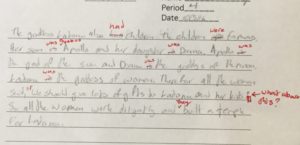 Period 4
Date
had were
The goddess Ladonna also children. The children famous,
was was was
Her son is Apollo and her daughter is Diana. Apollo is
was
the god of the sun and Diana is the goddess of the moon.
was
Ladonna is the goddess of women. There for all the women
said, "We should give lots of gifts to Ladonna and her kids. what about this?
they
So all the women work diligently and built a temple
For Ladonna.